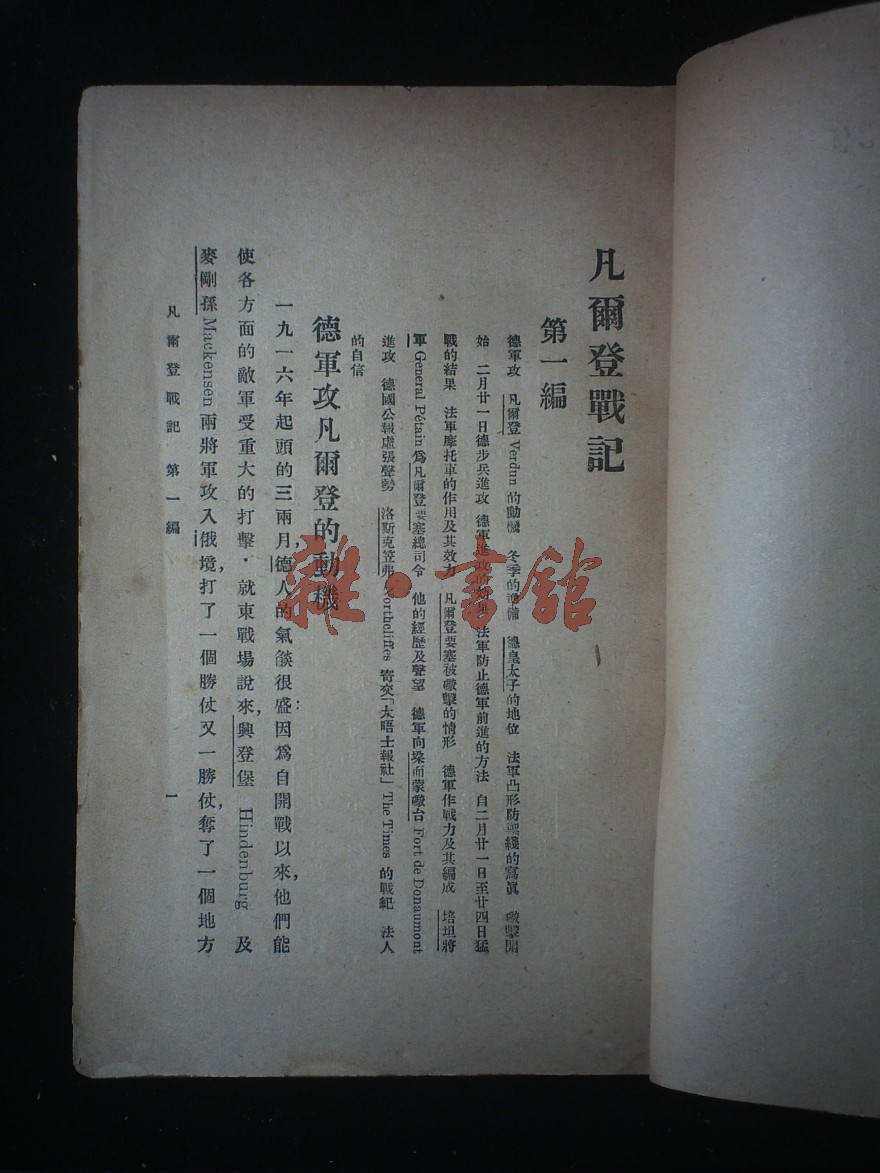 凡爾登戰記
第一編
德軍攻 凡爾登 Verdun 的動機 冬季的準備 德皇太子的地位 法軍凸形防禦綫的寫眞 礮擊開
始 二月廿一日德步兵進攻 德軍進攻的効果 法軍防止德軍前進的方法 自二月廿一日至廿四日猛
戰的結果 法軍摩托車的作用及其效力 凡爾登要塞被礮擊的情形 德軍作戰力及其編成 培坦將
軍 General Pétain 爲凡爾登要塞總司令 他的經歷及聲望 德軍向垛而蒙礮台 Fort de Donaumont
進攻 德國公報虛張聲勢 洛斯克笠弗 Northeliffes 寄交「太晤士報社」The Times 的戰紀 法人
的自信
德軍攻凡爾登的動機
一九一六年起頭的三兩月,德人的氣燄很盛:因爲自開戰以來,他們能
使各方面的敵軍受重大的打擊·就東戰場說來,興登堡 Hindenburg 及
麥剛孫 Mackensen 兩將軍攻入俄境,打了一個勝仗又一勝仗,奪了一個地方
凡爾登戰記 第一編
一
雜·書館